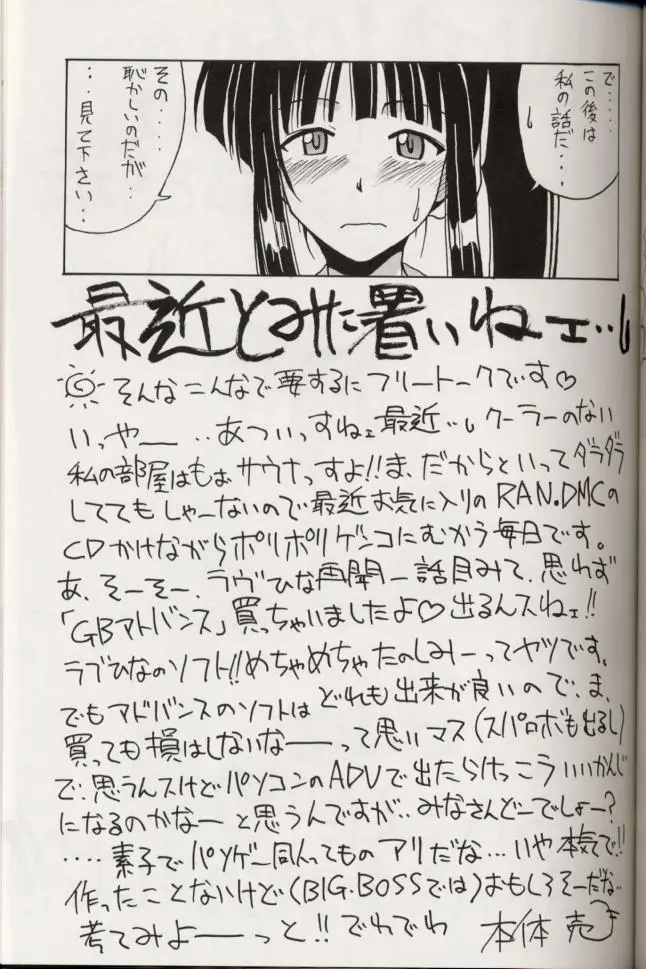 で‥‥
この後は
私の話だ・・・
その・・・・
恥かしいのだが‥
・・・見て下さい・・
最近とみに暑いねェ‥
そんなこんなで要するにフリートークです♡
いっやー ‥あついっすねェ最近‥クーラーのない
私の部屋はもぉサウナっすよ!!ま、だからといってダラダラ
しててもしゃーないので最近お気に入りのRAN.DMCの
CDかけながらポリポリゲンコにむかう毎日です。
あ、そーそー、ラヴひな再開一話目みて、思わず
「GBアドバンス」買っちゃいましたよ♡出るんスねェ!!
ラブひなのソフト!!めちゃめちゃたのしみーってヤツです。
でもアドバンスのソフトはどれも出来が良いので、ま、
買っても損はしないなーーって思いマス(スパロボも出るし)
で、思うんスけどパソコンのADVで出たらけっこういいかんじ
になるのかなーと思うんですが‥みなさんどーでしょー?
‥‥素子でパソゲー同人ってものアリだな…いや本気で!!
作ったことないけど(BIG.BOSSでは)おもしろそーだな
考てみよーーっと!!でわでわ 本体 売